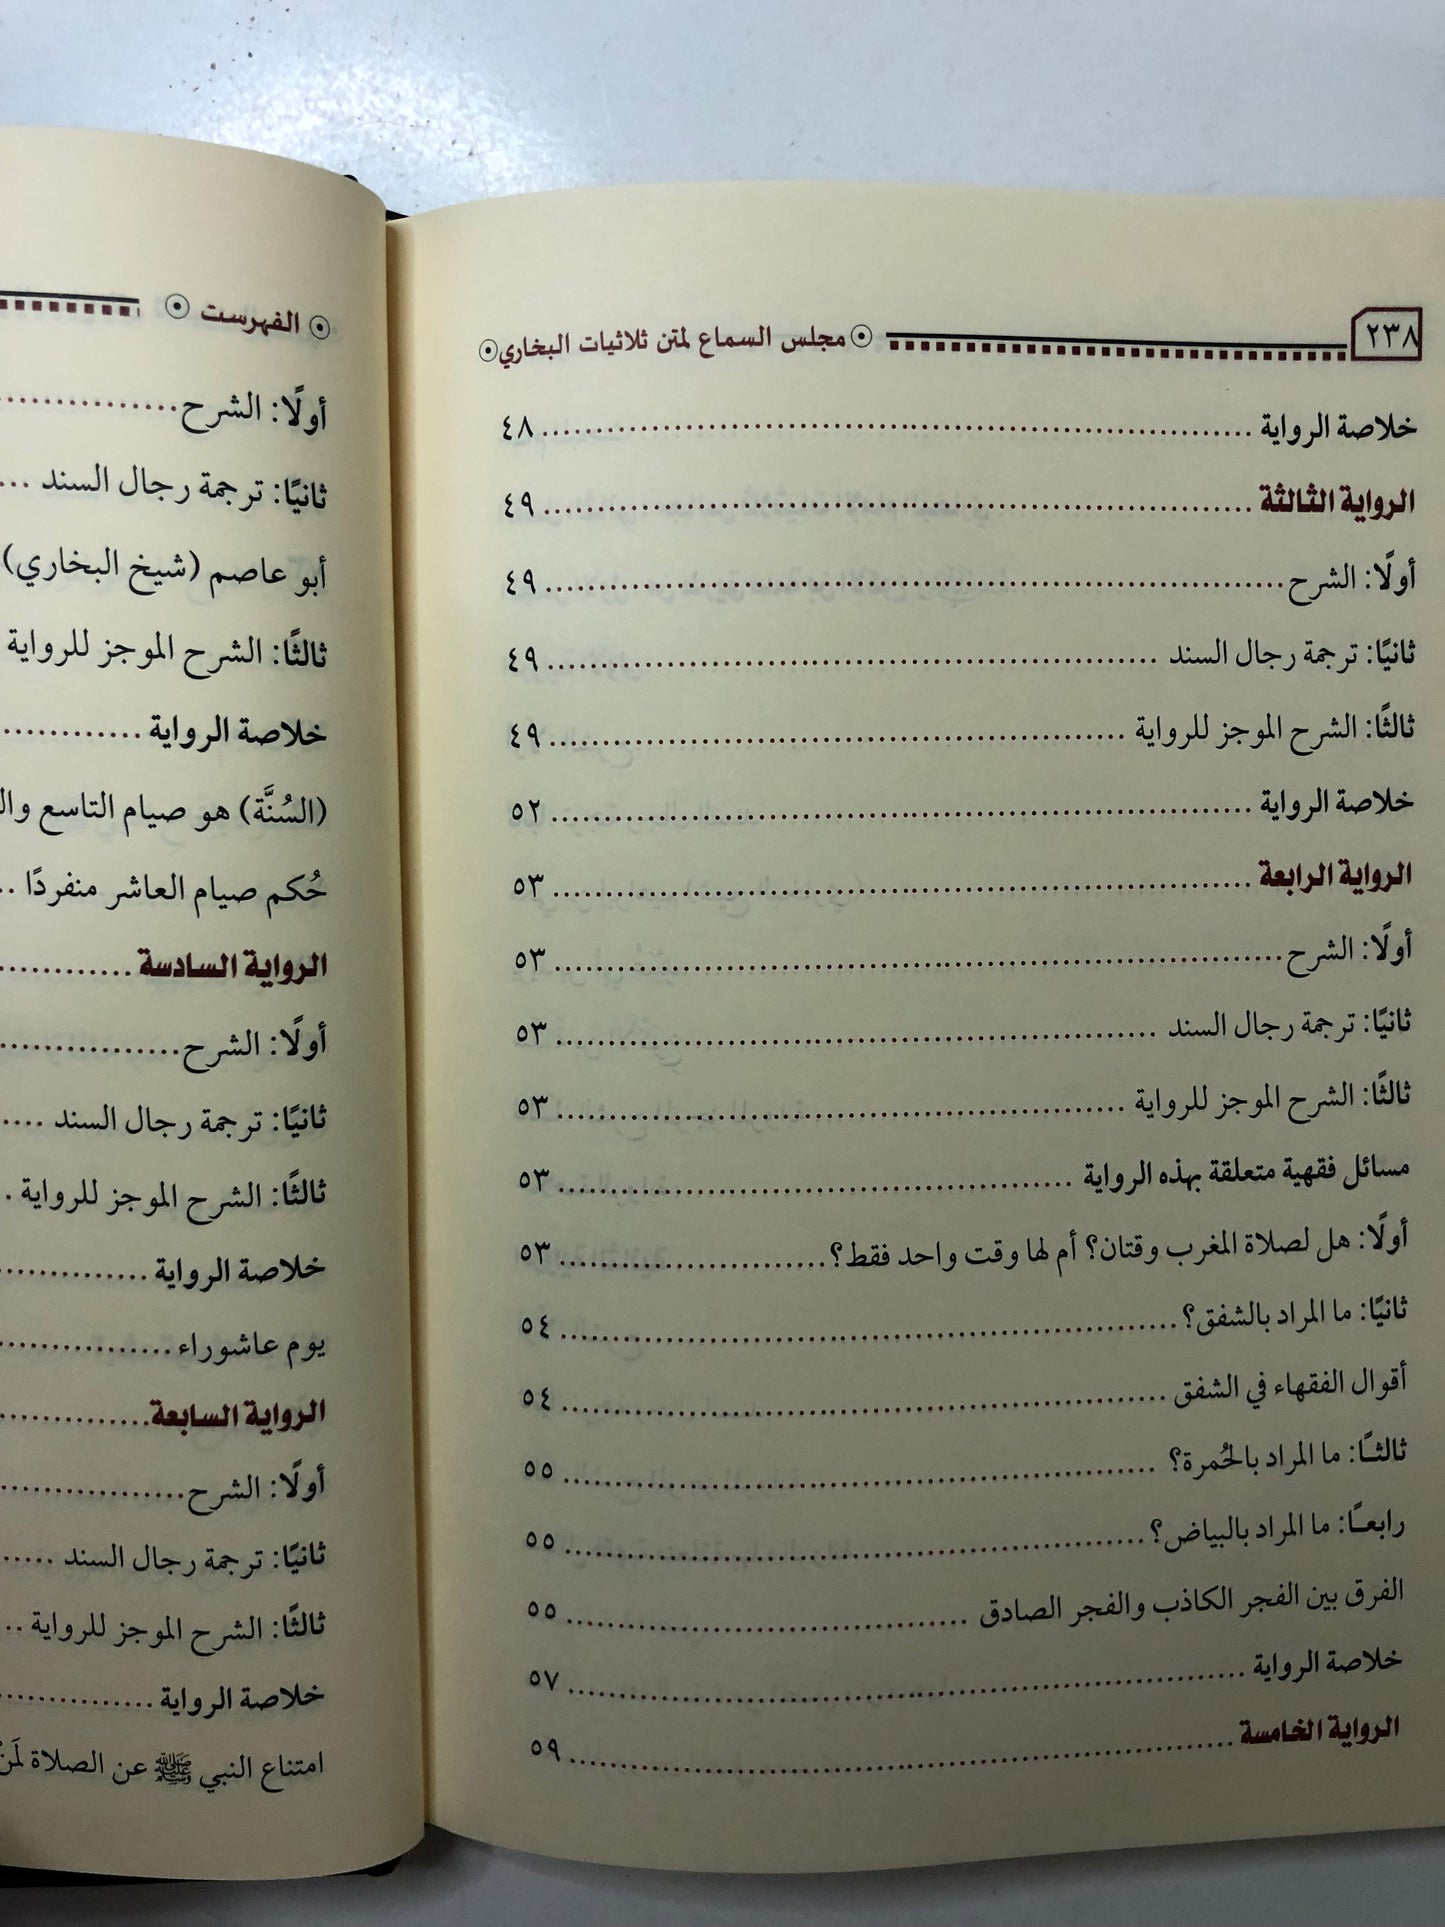 ٢٣٨ مجلس السماع لمتن ثلاثيات البخاري
خلاصة الرواية ........ ٤٨
الرواية الثالثة ........ ٤٩
أولًا: الشرح ........ ٤٩
ثانيًا: ترجمة رجال السند ........ ٤٩
ثالثًا: الشرح الموجز للرواية ........ ٤٩
خلاصة الرواية ........ ٥٢
الرواية الرابعة ........ ٥٣
أولًا: الشرح ........ ٥٣
ثانيًا: ترجمة رجال السند ........ ٥٣
ثالثًا: الشرح الموجز للرواية ........ ٥٣
مسائل فقهية متعلقة بهذه الرواية ........ ٥٣
أولًا: هل لصلاة المغرب وقتان؟ أم لها وقت واحد فقط؟ ........ ٥٣
ثانيًا: ما المراد بالشفق؟ ........ ٥٤
أقوال الفقهاء في الشفق ........ ٥٤
ثالثـًا: ما المراد بالحُمرة؟ ........ ٥٥
رابعـًا: ما المراد بالبياض؟ ........ ٥٥
الفرق بين الفجر الكاذب والفجر الصادق ........ ٥٥
خلاصة الرواية ........ ٥٧
الرواية الخامسة ........ ٥٩
الفهرست
أولًا: الشرح ........
ثانيًا: ترجمة رجال السند ...
أبو عاصم (شيخ البخاري)
ثالثًا: الشرح الموجز للرواية
خلاصة الرواية ........
(السُنَّة) هو صيام التاسع
حُكم صيام العاشر منفردًا ..
الرواية السادسة ........
أولًا: الشرح ........
ثانيًا: ترجمة رجال السند ....
ثالثًا: الشرح الموجز للرواية .
خلاصة الرواية ........
يوم عاشوراء ........
الرواية السابعة ........
أولًا: الشرح ........
ثانيًا: ترجمة رجال السند .....
ثالثًا: الشرح الموجز للرواية ..
خلاصة الرواية ........
امتناع النبي ﷺ عن الصلاة